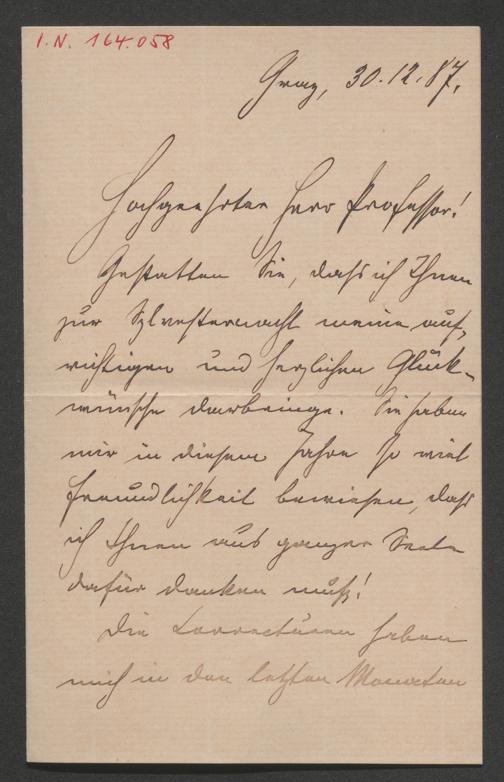 I.N. 164.058
Graz, 30.12.87.
Hochgeehrter Herr Professor!
Gestatten Sie, daß ich Ihnen
zur Sylvesternacht meine auf-
richtigen und herzlichen Glück-
wünsche darbringe. Sie haben
mir in diesem Jahre so viel
Freundlichkeit bewiesen, daß
ich Ihnen aus ganzer Seele
dafür danken muß!
Die Correcturen haben
mich in den letzten Monaten